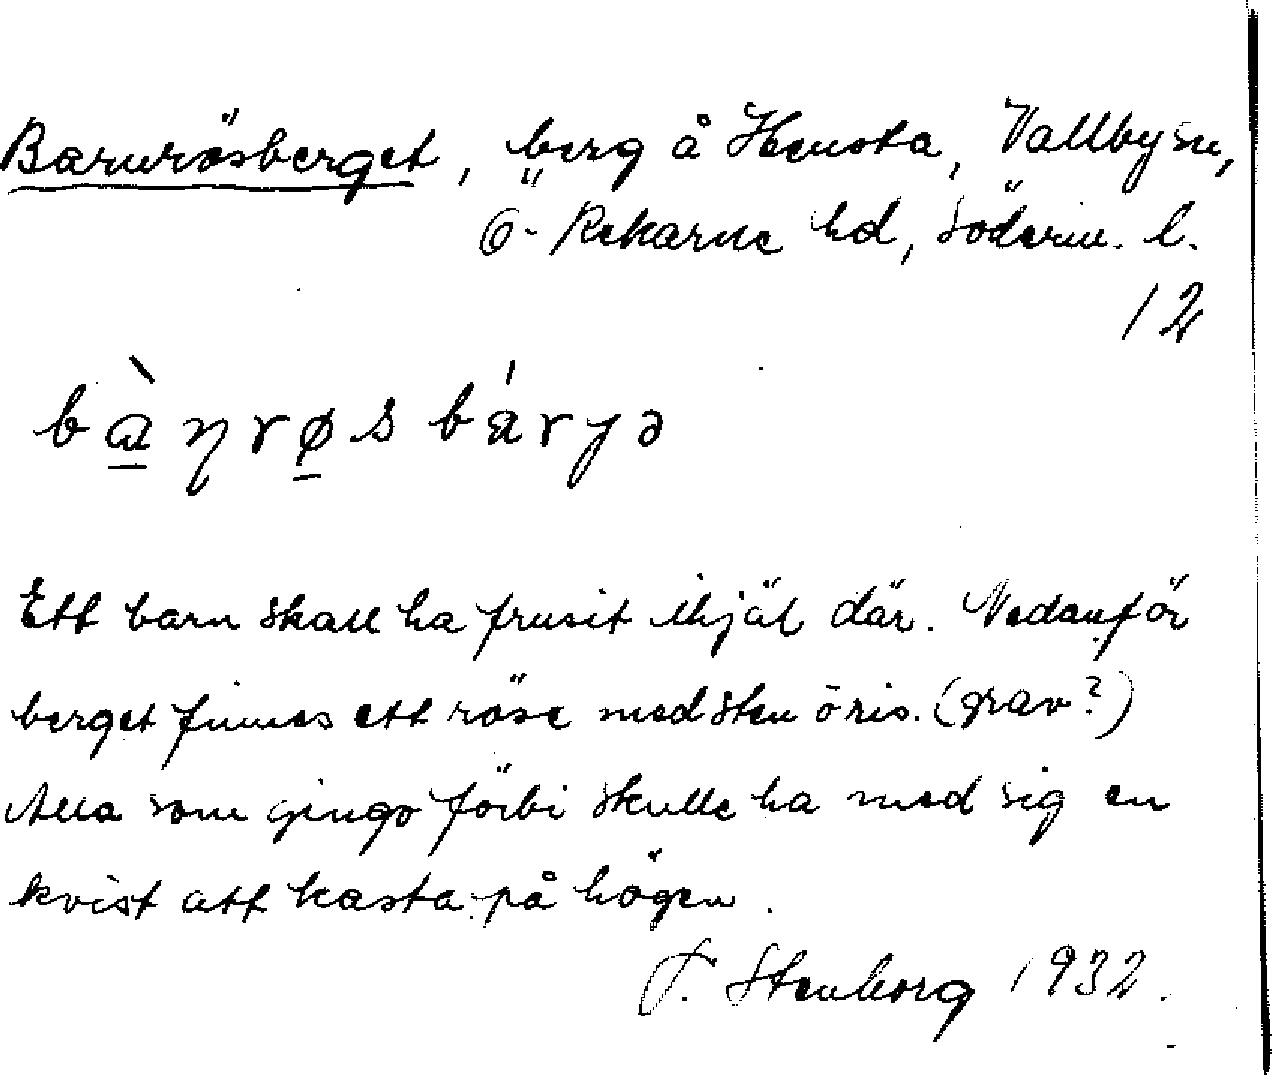 Barnrösberget, berg å Hensta, Vallby sn,
Ö. Rekarne hd, Söderm. l.
12
bàηrøsbárɟə
Ett barn skall ha frusit ihjäl där. Nedanför
berget finnes ett röse med sten o ris. (grav?)
Alla som gingo förbi skulle ha med sig en
kvist att kasta på högen.
Stenborg 1932.